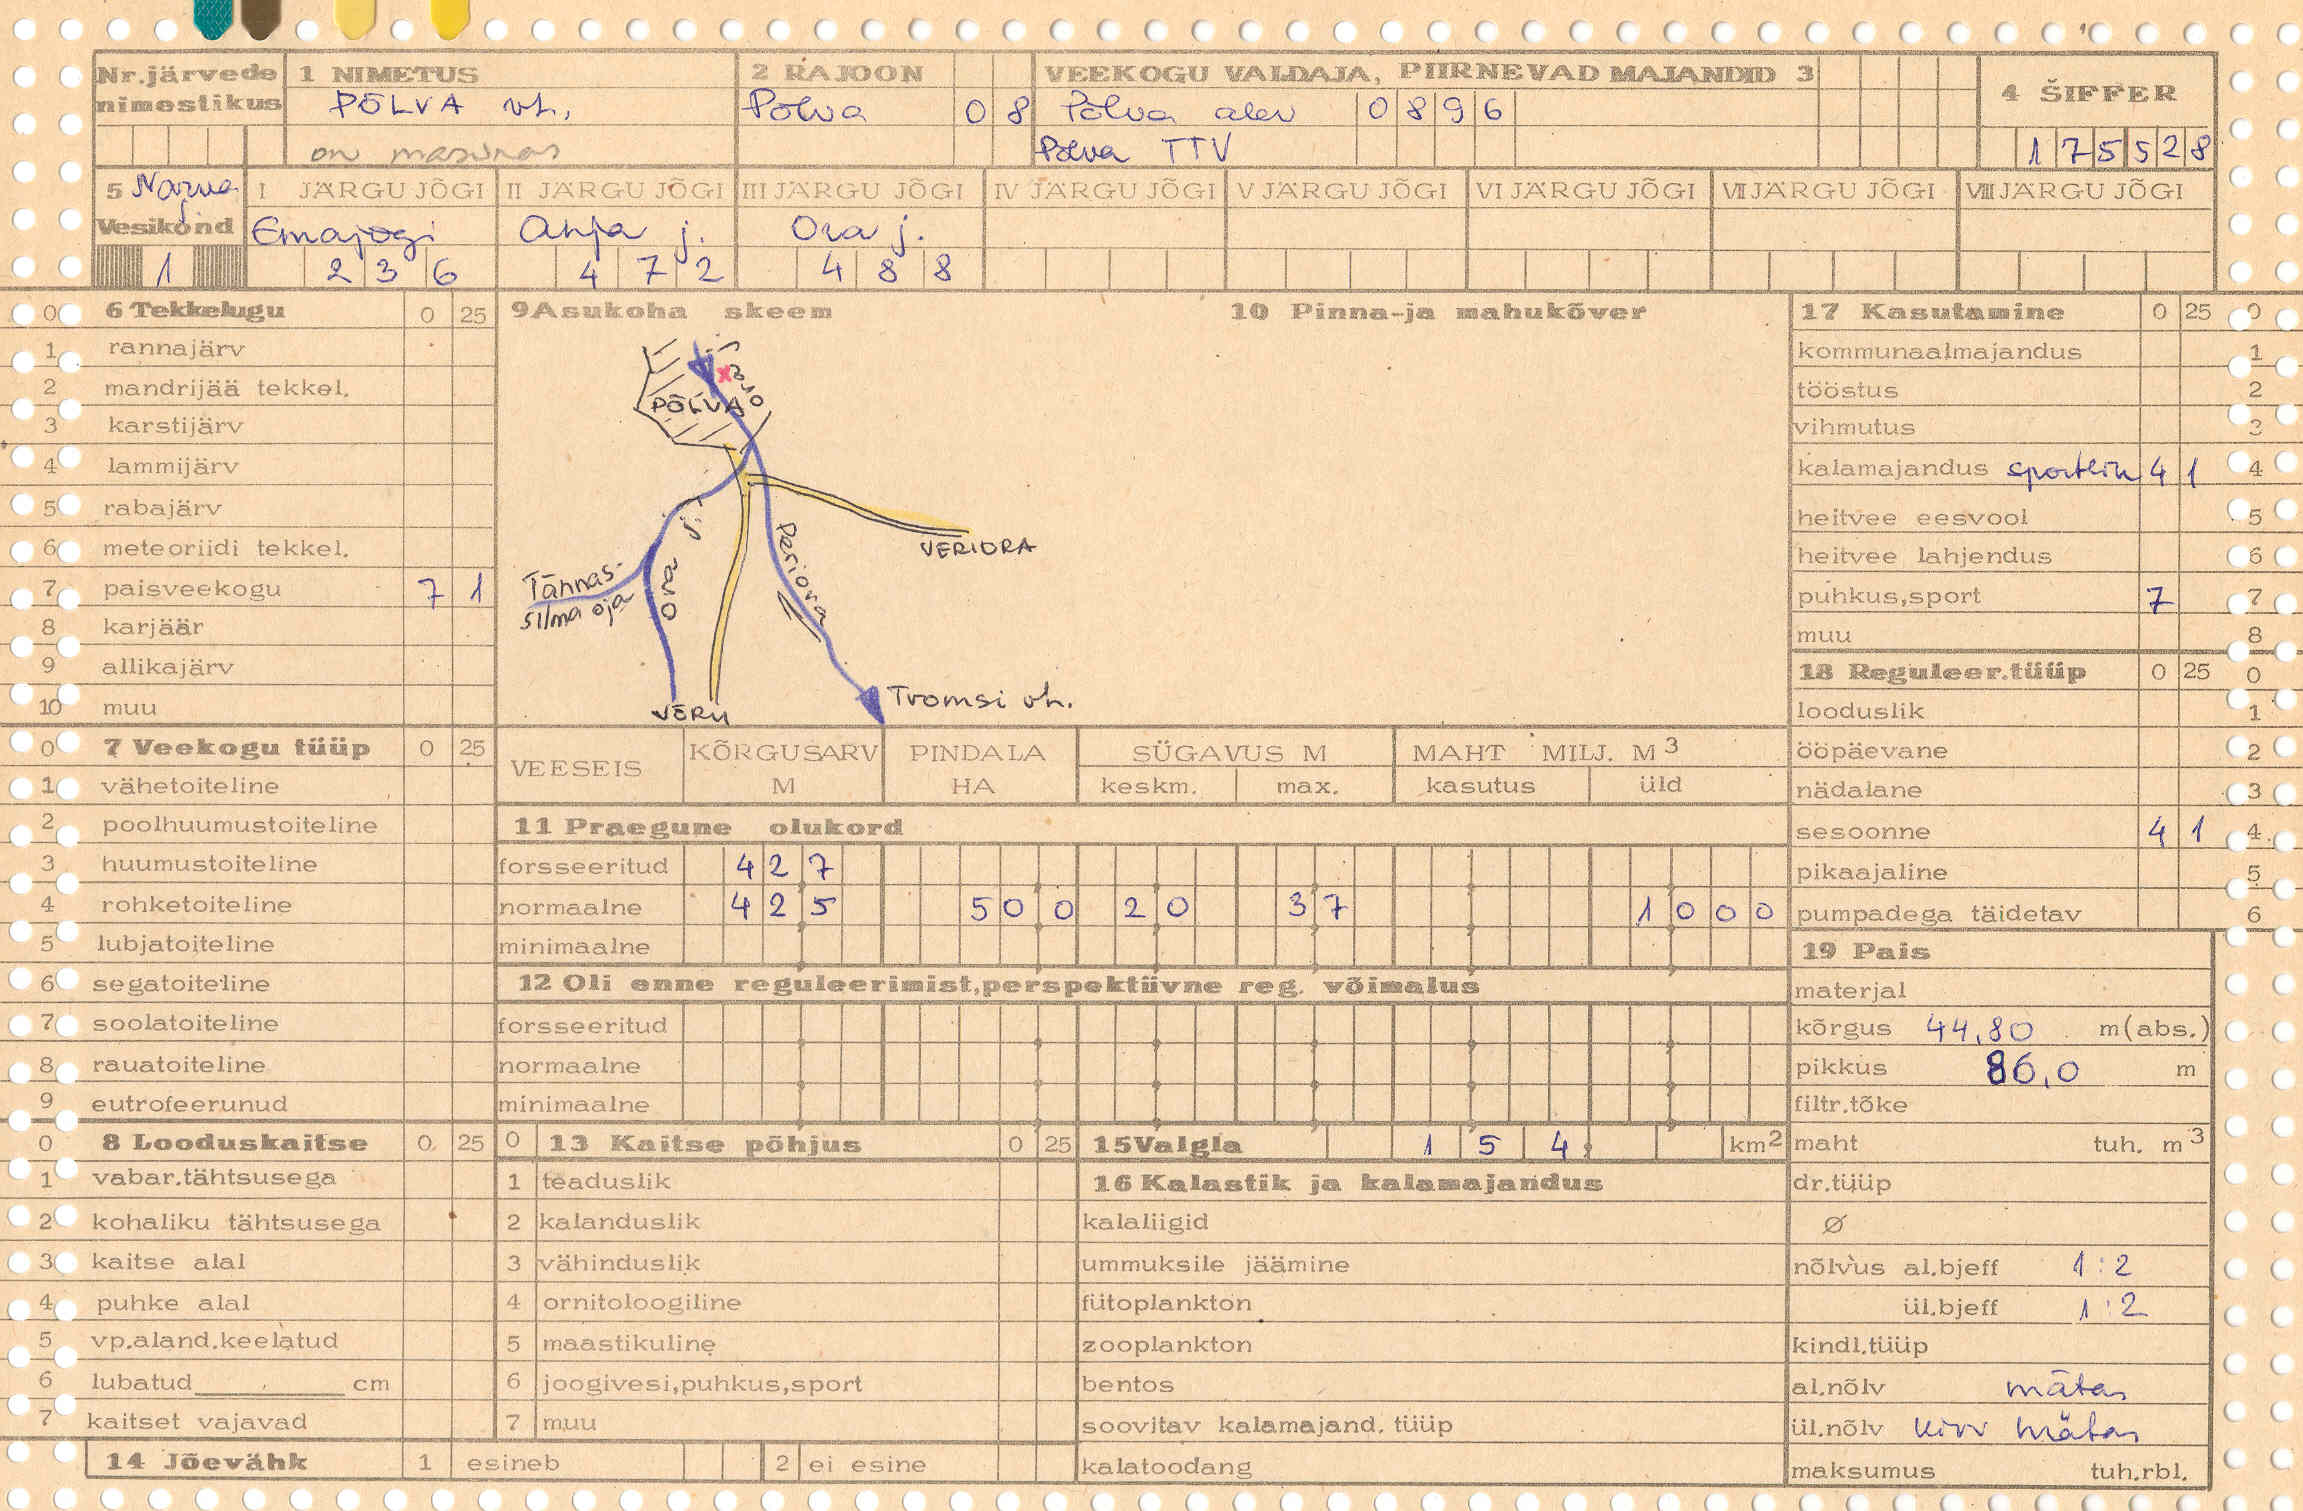 Nr.järvede nimestikus
1 NIMETUS
PÕLVA vh.
on masinas
2 RAJOON
Põlva 0 8
VEEKOGU VALDAJA, PIIRNEVAD MAJANDID 3
Põlva alev 0 8 9 6
Põlva TTV
4 ŠIFFER
1 7 5 5 2 8
5 Narva j.
Vesikond
1
I JÄRGU JÕGI
Emajõgi
2 3 6
II JÄRGU JÕGI
Ahja j.
4 7 2
III JÄRGU JÕGI
Ora j.
4 8 8
IV JÄRGU JÕGI
V JÄRGU JÕGI
VI JÄRGU JÕGI
VII JÄRGU JÕGI
VIII JÄRGU JÕGI
0 6 Tekkelugu 0 25
1 rannajärv
2 mandrijää tekkel.
3 karstijärv
4 lammijärv
5 rabajärv
6 meteoriidi tekkel.
7 paisveekogu 7 1
8 karjäär
9 allikajärv
10 muu
0 7 Veekogu tüüp 0 25
1 vähetoiteline
2 poolhuumustoiteline
3 huumustoiteline
4 rohketoiteline
5 lubjatoiteline
6 segatoiteline
7 soolatoiteline
8 rauatoiteline
9 eutrofeerunud
0 8 Looduskaitse 0 25
1 vabar.tähtsusega
2 kohaliku tähtsusega
3 kaitse alal
4 puhke alal
5 vp.aland.keelatud
6 lubatud cm
7 kaitset vajavad
14 Jõevähk 1 esineb 2 ei esine
9 Asukoha skeem
PÕLVA
Ora j.
VERIORA
Tännas-
silma oja
Ora j.
Periora
VÕRU
Tromsi vh.
10 Pinna-ja mahukõver
VEESEIS
KÕRGUSARV M
PINDALA HA
SÜGAVUS M
keskm. max.
MAHT MILJ. M3
kasutus üld
11 Praegune olukord
forsseeritud 4 2 7
normaalne 4 2 5 5 0 0 2 0 3 7 1 0 0 0
minimaalne
12 Oli enne reguleerimist,perspektiivne reg. võimalus
forsseeritud
normaalne
minimaalne
0 13 Kaitse põhjus 0 25
1 teaduslik
2 kalanduslik
3 vähinduslik
4 ornitoloogiline
5 maastikuline
6 joogivesi,puhkus,sport
7 muu
15 Valgla 1 5 4 km2
16 Kalastik ja kalamajandus
kalaliigid
ummuksile jäämine
fütoplankton
zooplankton
bentos
soovitav kalamajand. tüüp
kalatoodang
17 Kasutamine 0 25 0
kommunaalmajandus 1
tööstus 2
vihmutus 3
kalamajandus sportlik 4 1 4
heitvee eesvool 5
heitvee lahjendus 6
puhkus,sport 7 7
muu 8
18 Reguleer.tüüp 0 25 0
looduslik 1
ööpäevane 2
nädalane 3
sesoonne 4 1 4
pikaajaline 5
pumpadega täidetav 6
19 Pais
materjal
kõrgus 44,80 m(abs.)
pikkus 86,0 m
filtr.tõke
maht tuh. m3
dr.tüüp
Ø
nõlvus al.bjeff 1:2
ül.bjeff 1:2
kindl.tüüp
al.nõlv mätas
ül.nõlv kivi mätas
maksumus tuh.rbl.